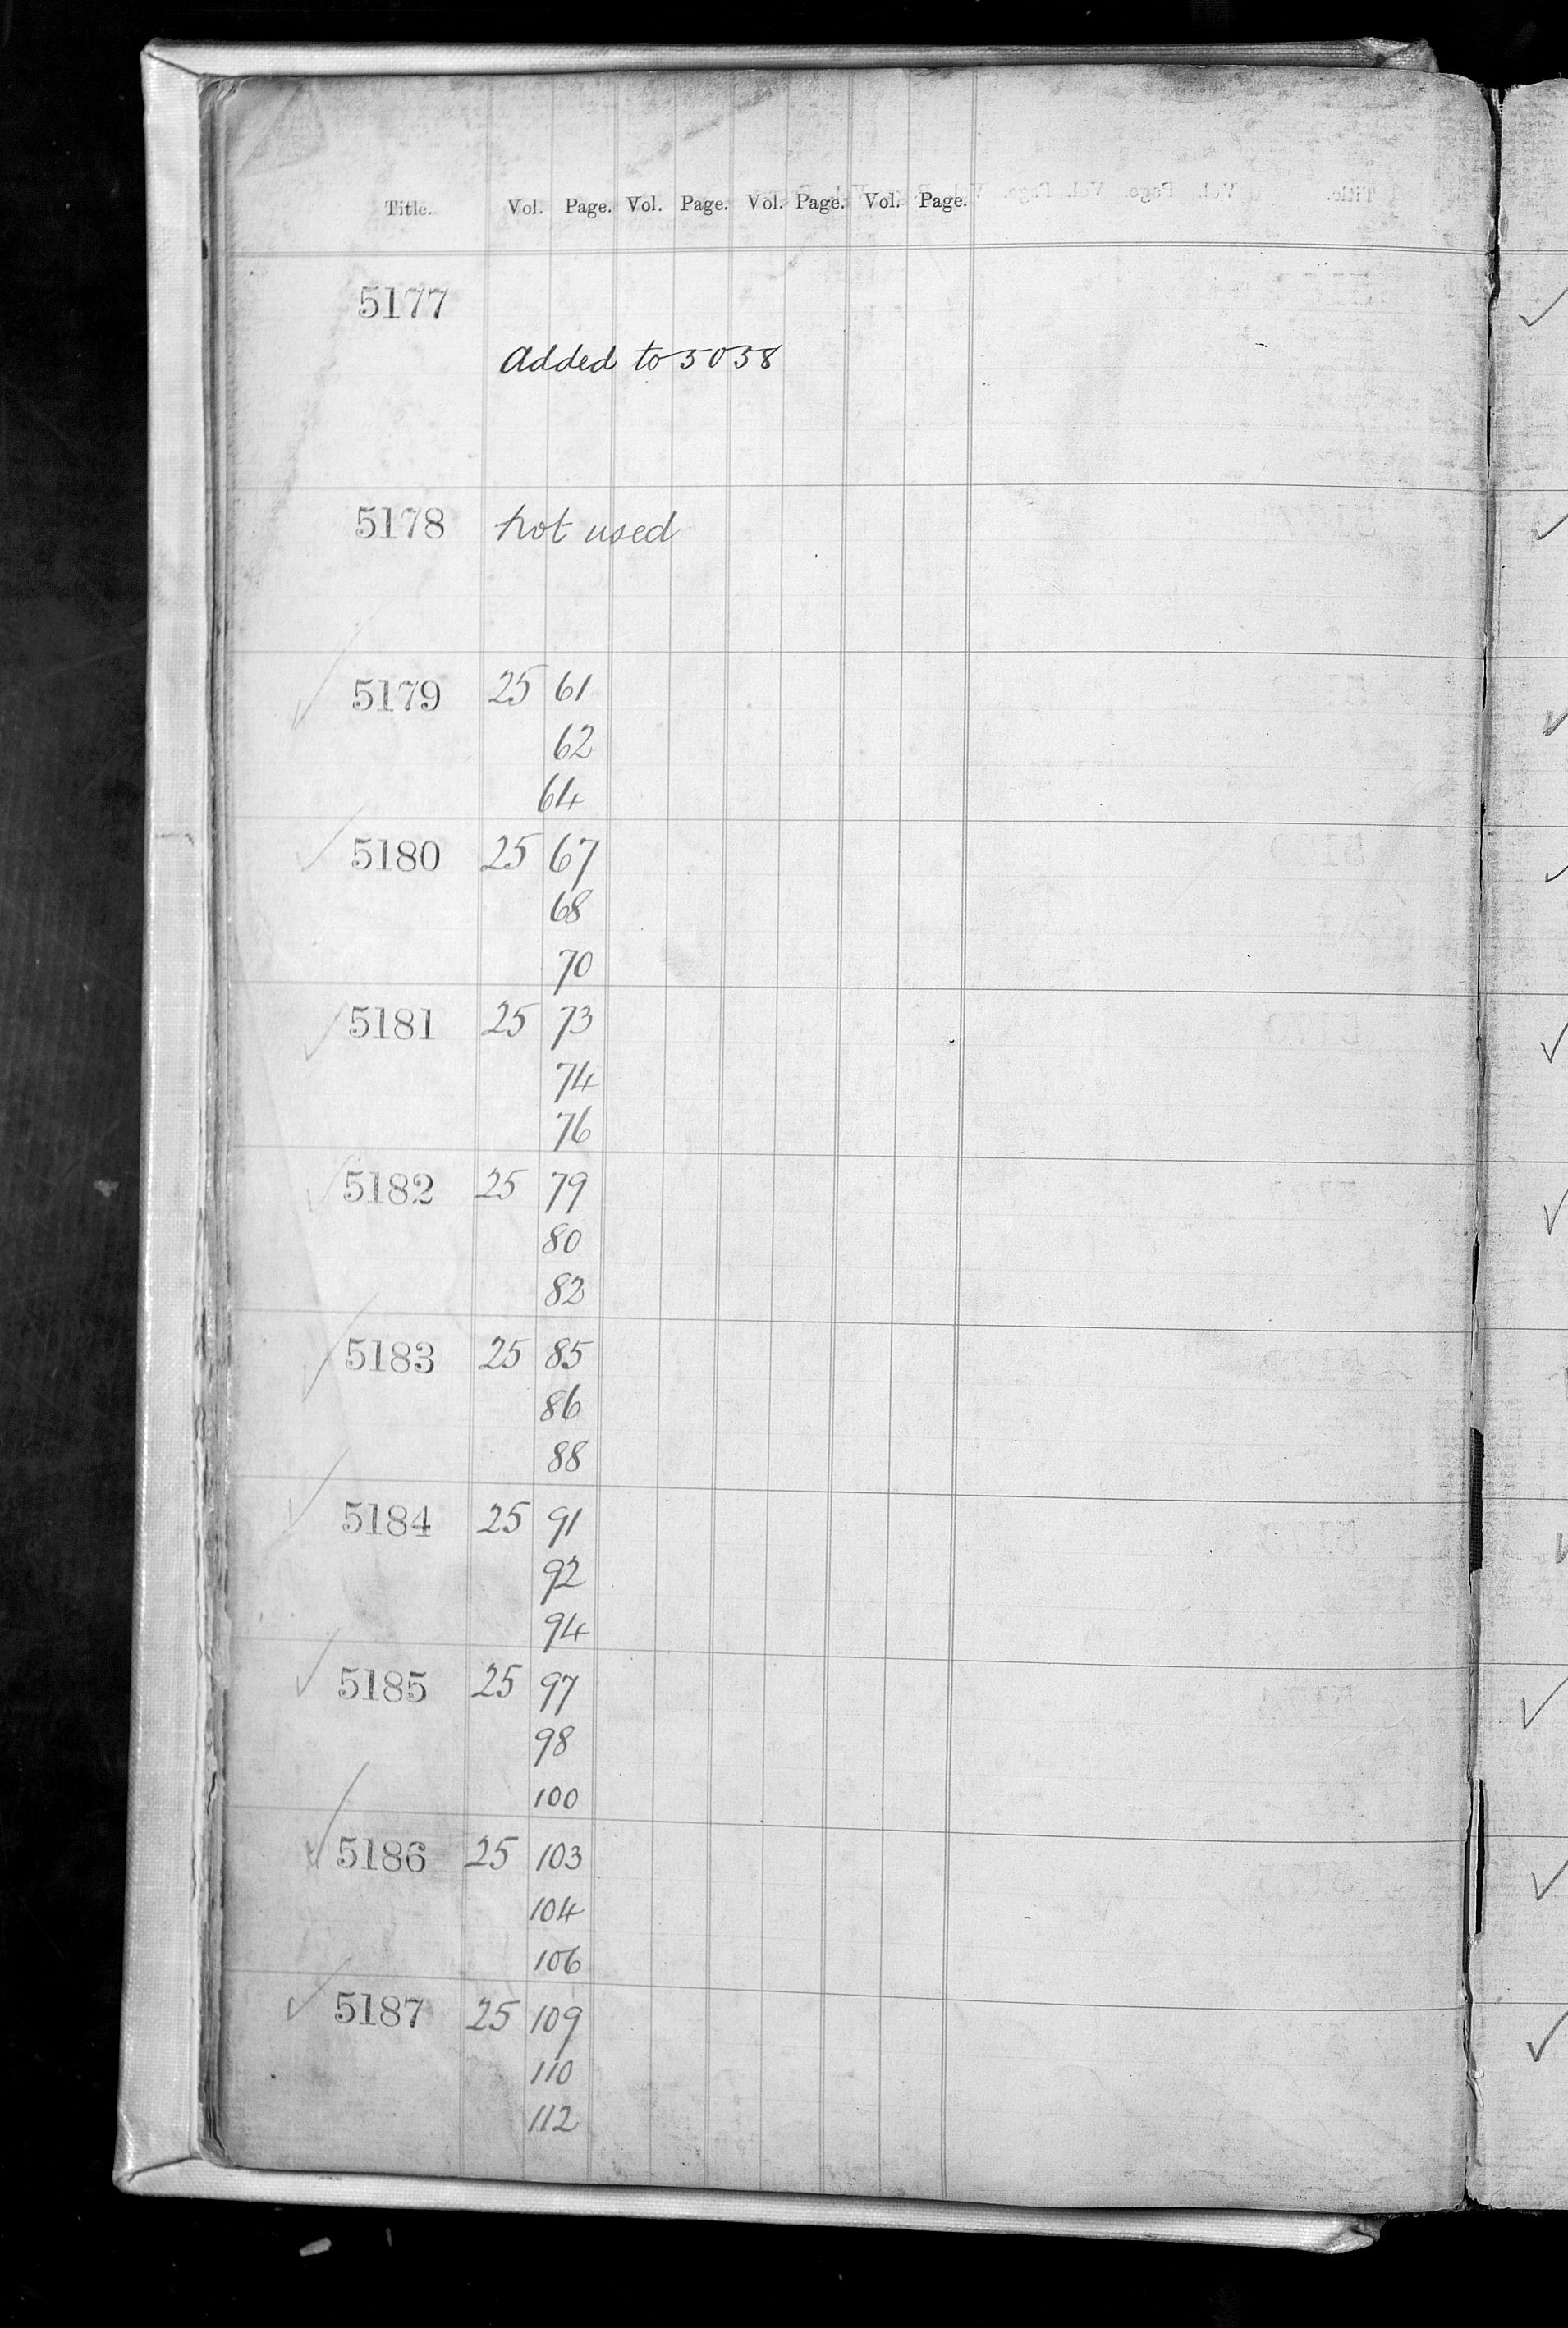 Title. Vol. Page. Vol. Page. Vol. Page. Vol. Page.
5177
Added to 5038
5178 not used
✓ 5179 25 61
62
64
✓ 5180 25 67
68
70
✓ 5181 25 73
74
76
✓ 5182 25 79
80
82
✓ 5183 25 85
86
88
✓ 5184 25 91
92
94
✓ 5185 25 97
98
100
✓ 5186 25 103
104
106
✓ 5187 25 109
110
112